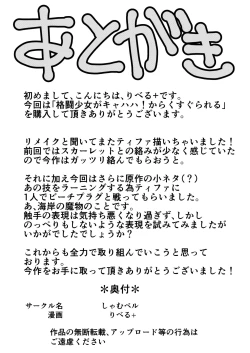 あとがき
初めまして、こんにちは、りべる+です。
今回は「格闘少女がキャハハ！からくすぐられる」
を購入して頂きありがとうございます。
リメイクと聞いてまたティファ描いちゃいました！
前回ではスカーレットとの絡みが少なく感じていた
ので今作はガッツリ絡んでもらおうと。
それに加え今回はさらに原作の小ネタ(？)
あの技をラーニングする為ティファに
1人でビーチプラグと戦ってもらいました。
あ、海岸の魔物のことです。
触手の表現は気持ち悪くなり過ぎず、しかし
のっぺりもしないような表現を試みてみましたが
いかがでしたでしょうか？
これからも全力で取り組んでいこうと思って
おります。
今作をお手に取って頂きありがとうございました！
＊奥付＊
サークル名 しゃむべル
漫画 りべる+
作品の無断転載、アップロード等の行為は
ご遠慮ください